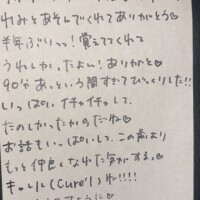 れみとあそんでくれてありがとう♡
半年ぶりっっ!覚えててくれて
うれしかったよん!ありがと♡
90分あっという間すぎてびっくりした!!
いっぱいイチャイチャして、
たのしかったのだね♡
お話もいーっぱいして、この前より
もっと仲良くなれた気がする。♥
きゅんい(Cure')ね!!!!